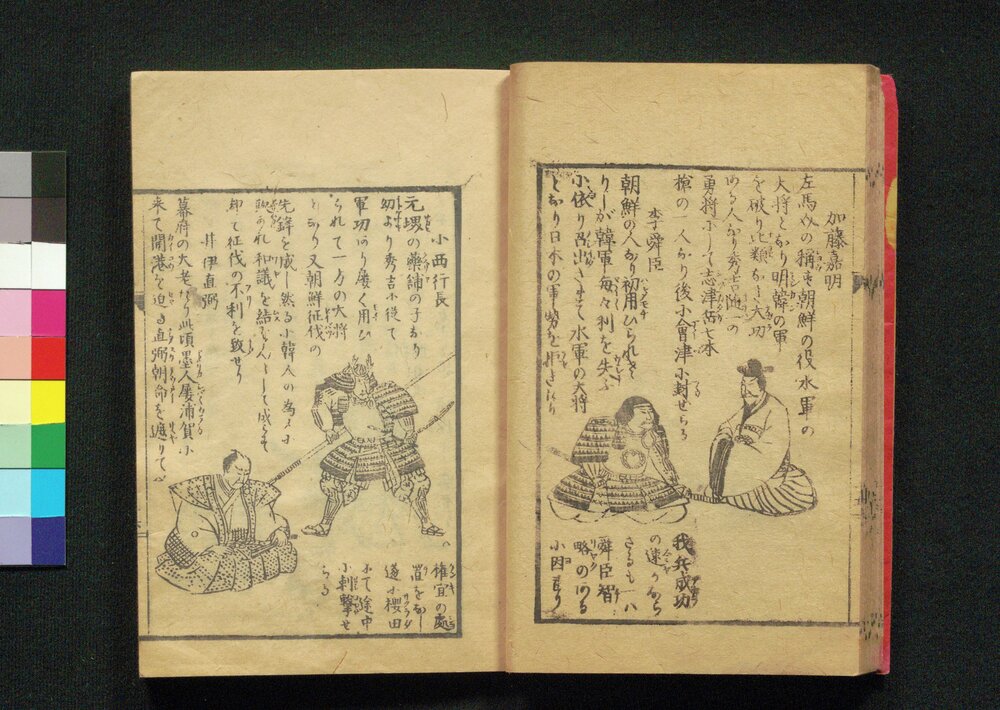 加藤嘉明
左馬介の稱も朝鮮の役水軍の
大將となり明韓の軍
を破り比類なき大功
ある人なり秀吉随一の
勇將にして志津嶽七本
槍の一人なり後小會津小封せらる
李舜臣
朝鮮の人なり初用ひられず
りしが韓軍毎々利を失ふ
小依り召出されて水軍の大將
となり日本の軍勢を
我兵成功
の速かなら
ざるも一ハ
舜臣智
略のある
小因るなり
小西行長
元堺の藥舗の子なり
幼より秀吉小從て
軍功あり屡く用ひ
られて一方の大將
となり又朝鮮征伐の
先鋒を成し然る小韓人の為めに
欺かれ和議を結ばんとして成らず
却て征伐の不利を致せり
井伊直弼
幕府の大老たり此頃墨人屡浦賀小
來て開港を迫る直弼朝命を遵りて
權宜の處
置をなし
遂小櫻田
にて途中
小刺撃せ
らる